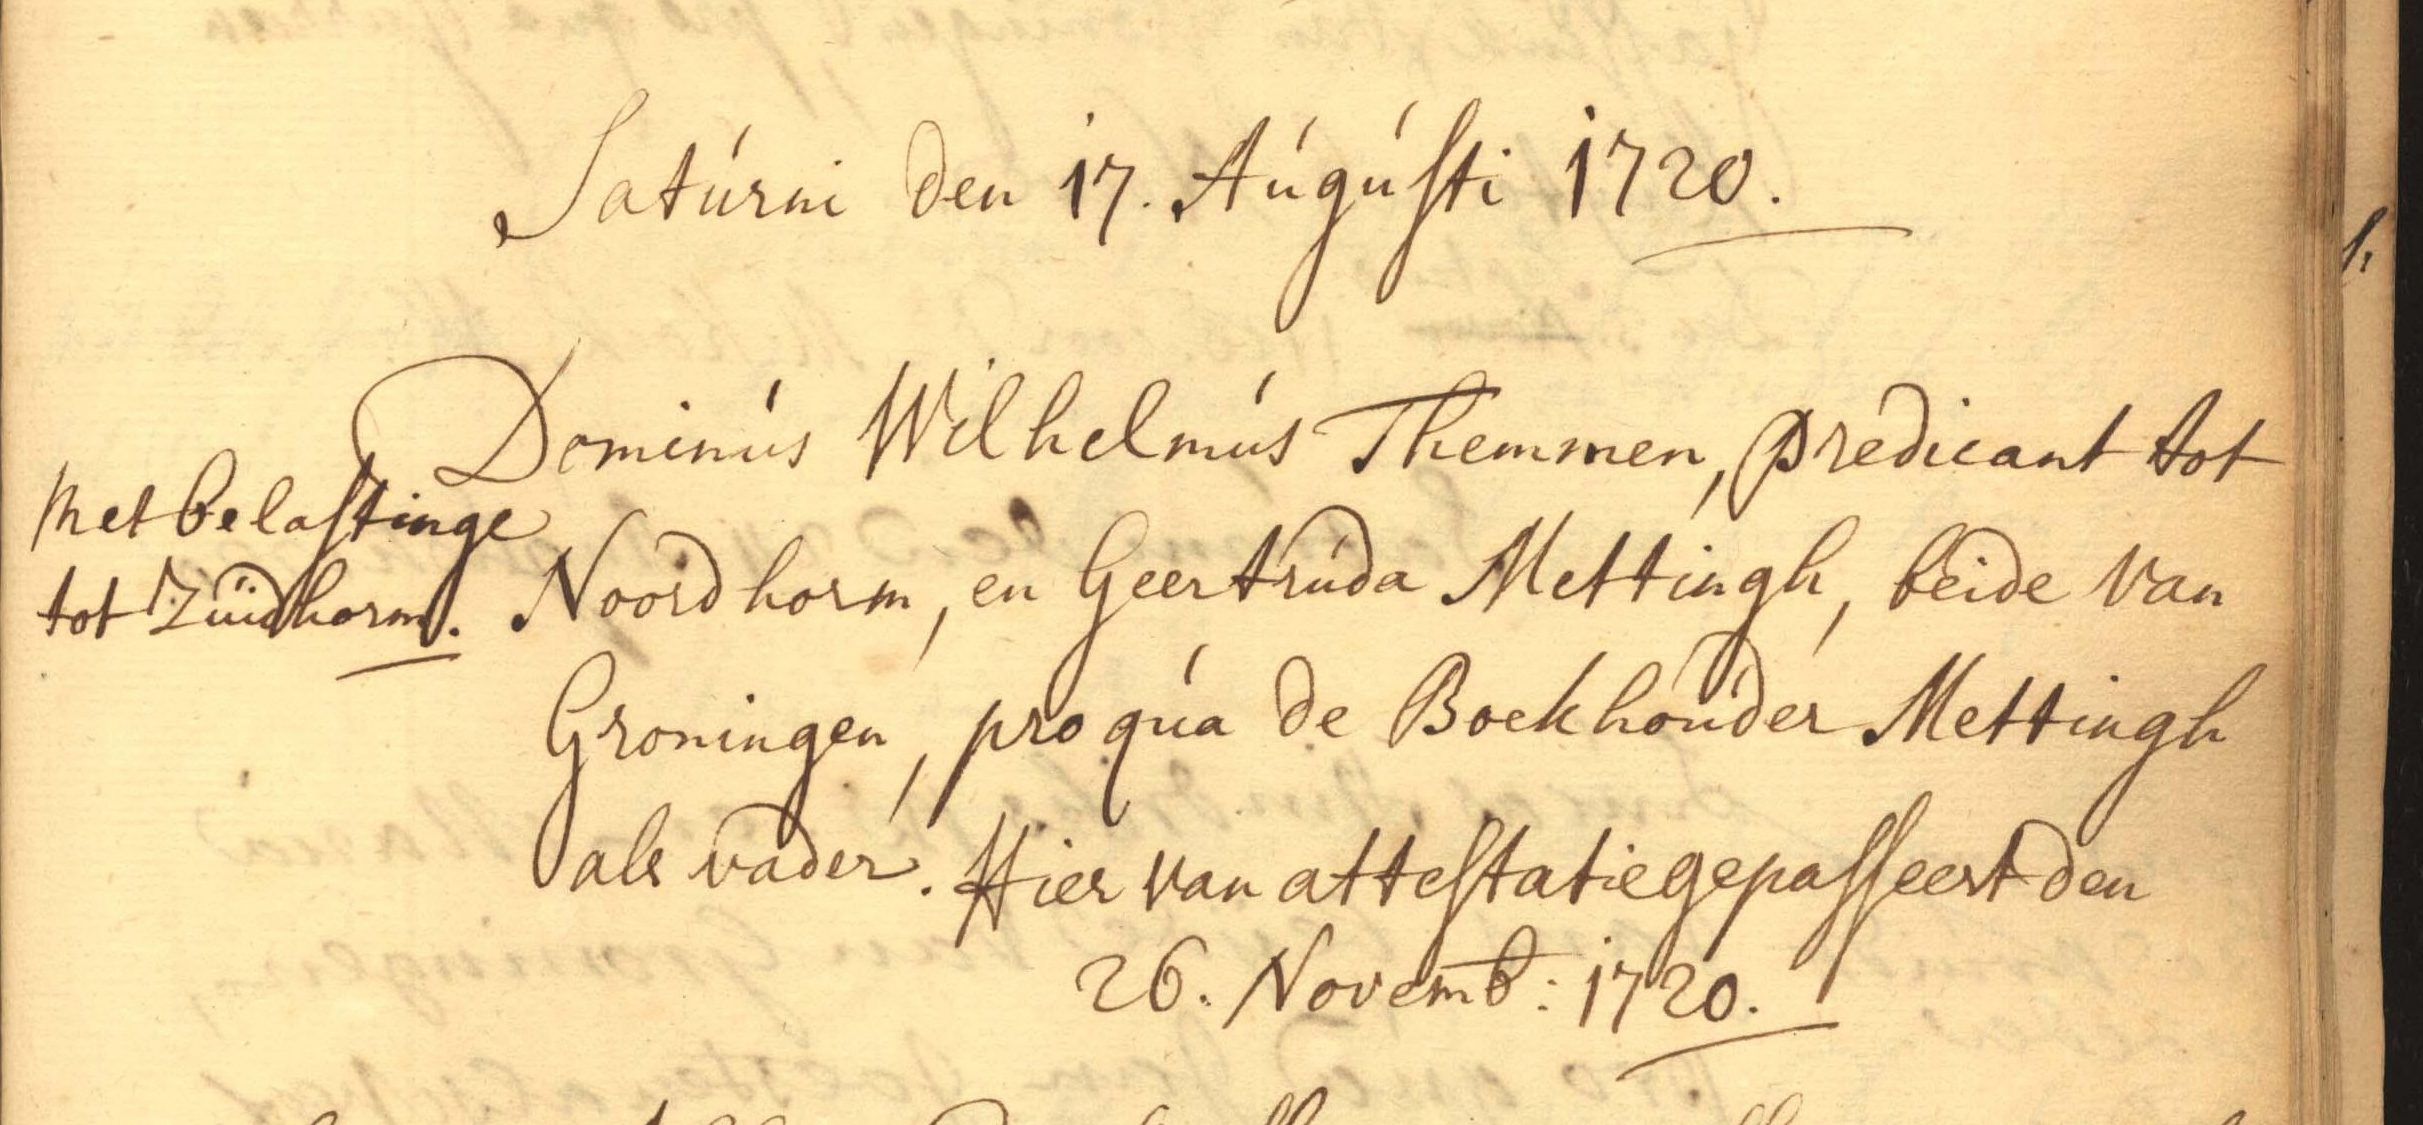 Saturni den 17. Augusti 1720.
Dominus Wilhelmus Themmen, predicant tot
Met belastinge
tot Zuidhorm.
Noordhorm, en Geertruda Mettingh, beide van
Groningen, pro qua de Boekhouder Mettingh
als vader. Hier van attestatie gepasseert den
26. Novemb: 1720.